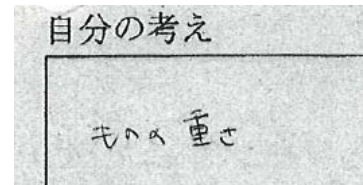 自分の考え
ものの重さ